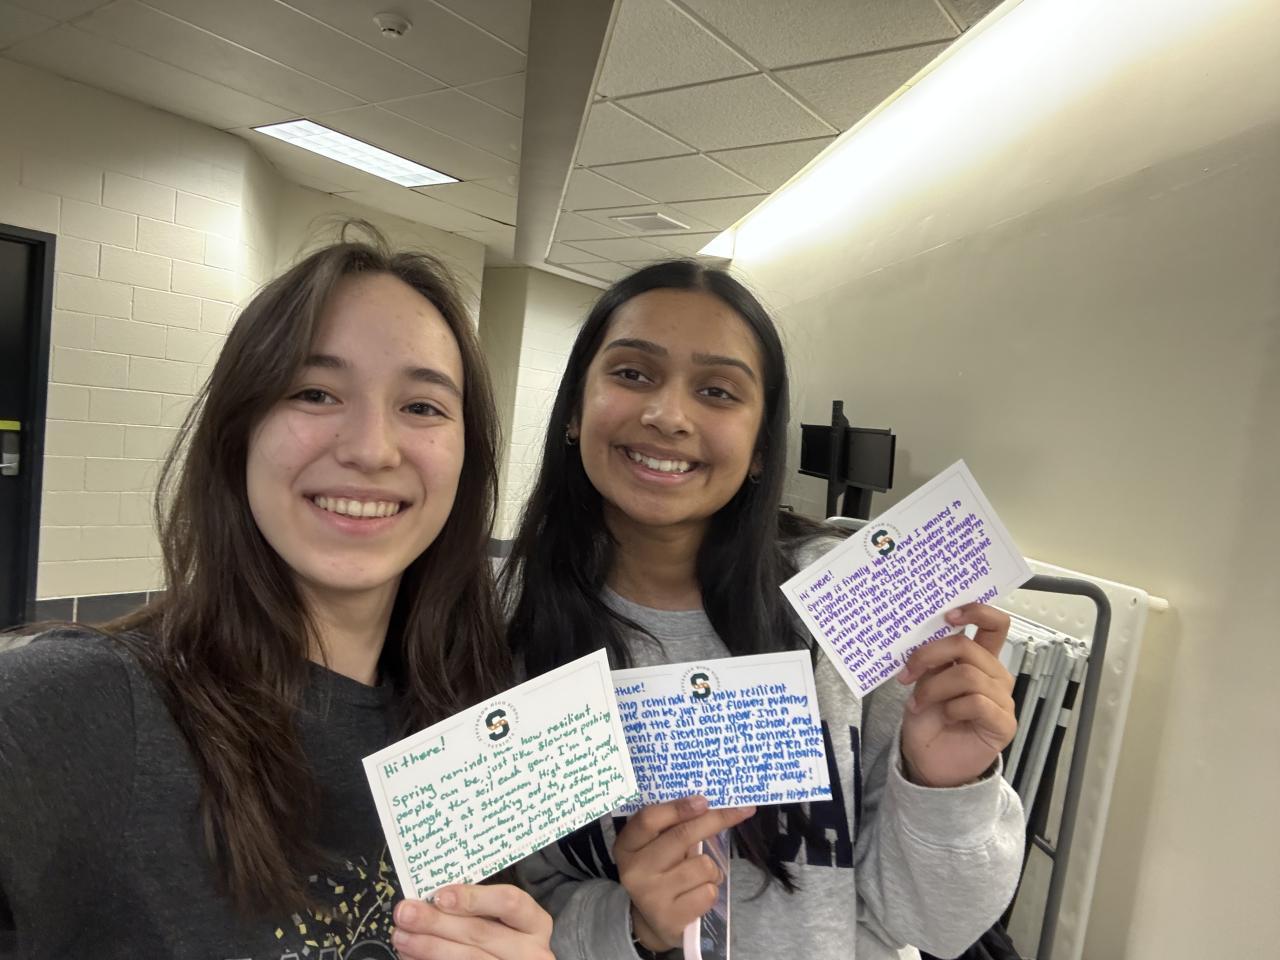 Hi there!
Spring reminds me how resilient
people can be, just like flowers pushing
through the soil each year. I'm a
student at Stevenson High School, and
our class is reaching out to connect with
community members we don't often see.
I hope this season brings you good health,
peaceful moments, and colorful blooms
to brighten your days!
there!
ing reminds me how resilient
ple can be, just like flowers pushing
ough the soil each year. I'm a
dent at Stevenson High School, and
class is reaching out to connect with
munity members we don't often see.
this season brings you good health,
ful moments, and perhaps some
ful blooms to brighten your days!
to brighter days ahead!
/Stevenson High School
STEVENSON HIGH SCHOOL
S
Hi there!
Spring is finally here, and I wanted to
brighten your day! I'm a student at
Stevenson High School, and even though
we haven't met, I'm sending you warm
wishes as the flowers start to bloom. I
hope your days are filled with sunshine
and little moments that make you
smile. Have a wonderful spring!
12th grade/Stevenson High School